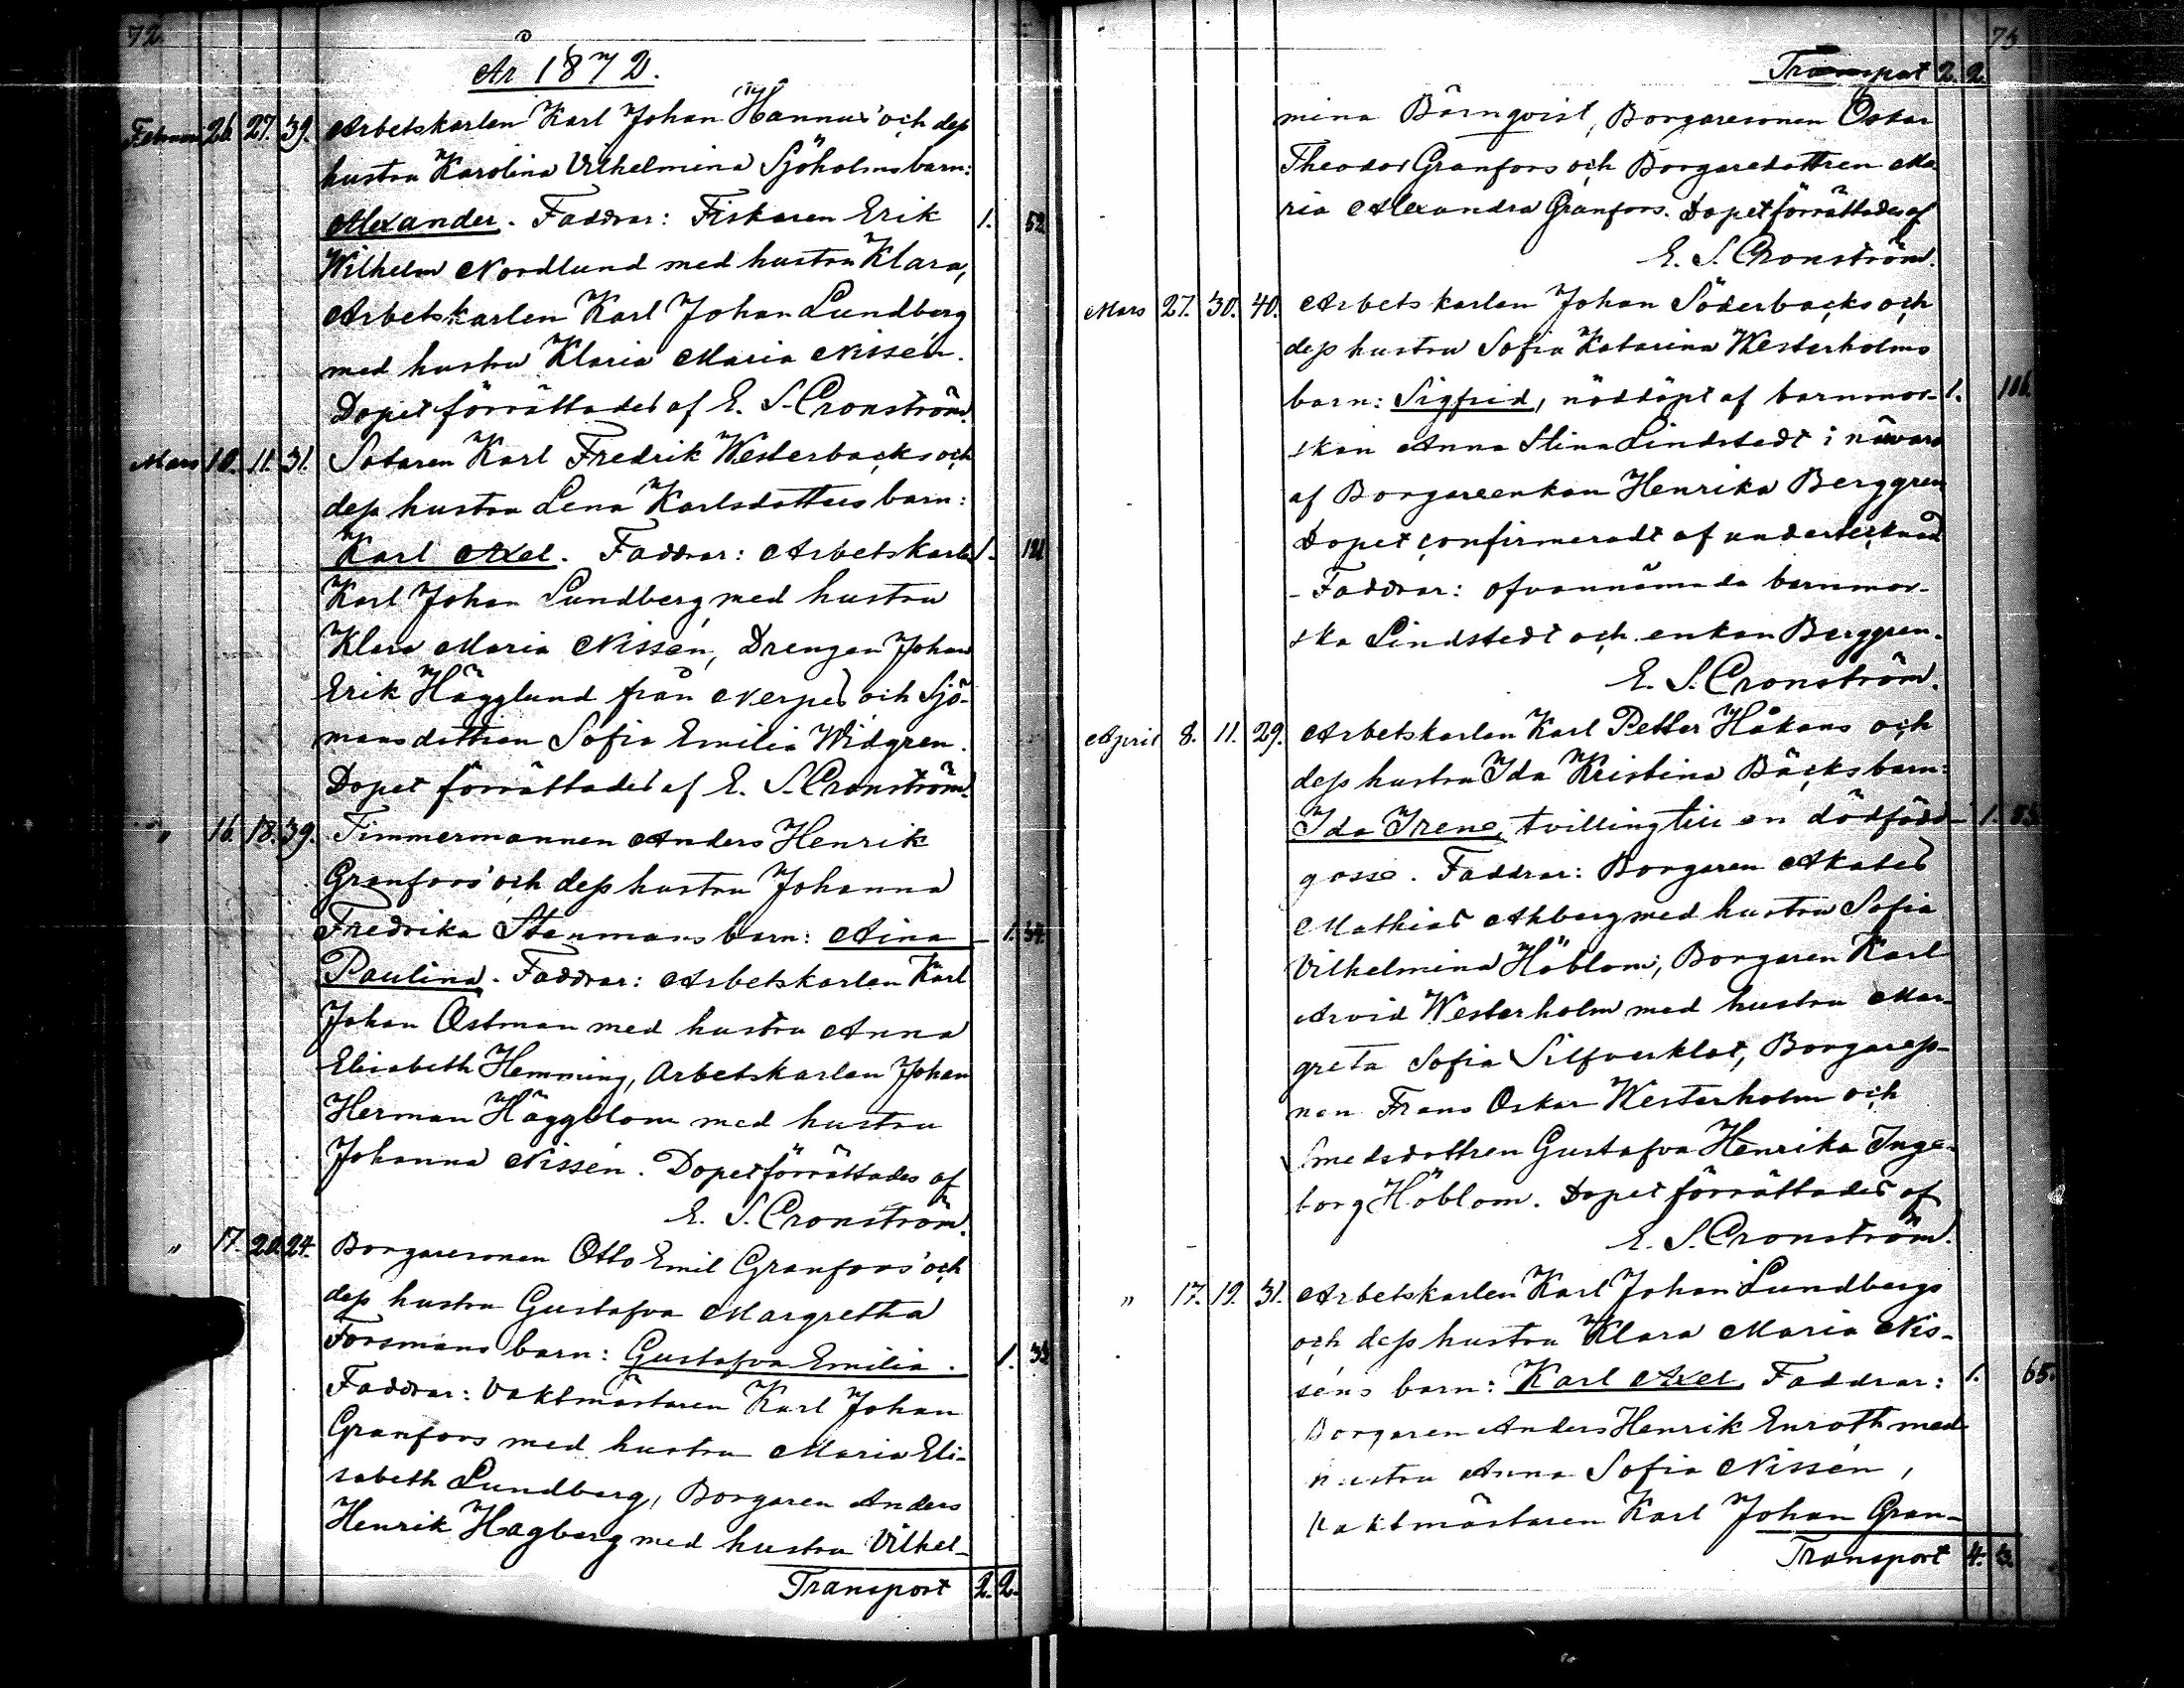 72.
År 1872.
Februari 26. 27. 39. Arbetskarlen Karl Johan Hannus' och dess
hustru Karolina Vilhelmina Sjöholms barn:
Alexander. Faddrar: Fiskaren Erik 1. 52
Wilhelm Nordlund med hustru Klara,
Arbetskarlen Karl Johan Lundberg
med hustru Klaria Maria Nissén.
Dopet förrättades af E. S. Cronström.
Mars 10. 11. 31. Sotaren Karl Fredrik Westerbacks och
dess hustru Lena Karlsdotters barn:
Karl Axel. Faddrar: Arbetskarlen 1.
Karl Johan Lundberg med hustru
Klara Maria Nissén, Drengen Johan
Erik Hägglund från Nerpes och Sjö-
mansdottren Sofia Emilia Widgren.
Dopet förrättades af E. S. Cronström.
" 16. 18. 39. Timmermannen Anders Henrik
Granfors' och dess hustru Johanna
Fredrika Stenmans barn: Aina 1. 34.
Paulina. Faddrar: Arbetskarlen Karl
Johan Östman med hustru Anna
Elisabeth Hemming, Arbetskarlen Johan
Herman Häggblom med hustru
Johanna Nissén. Dopet förrättades af
E. S. Cronström.
" 17. 20. 24. Borgaresonen Otto Emil Granfors' och
dess hustru Gustafva Margretha
Forsmans barn: Gustafva Emilia. 1. 33
Faddrar: Vaktmästaren Karl Johan
Granfors med hustru Maria Eli-
sabeth Lundberg, Borgaren Anders
Henrik Hagberg med hustru Vilhel-
Transport 2. 2.
73
Transport 2. 2.
mina Börnqvist, Borgaresonen Oskar
Theodor Granfors och Borgaredottren Ma-
ria Alexandra Granfors. Dopet förrättades af
E. S. Cronström.
Mars 27. 30. 40. Arbetskarlen Johan Söderbacks och
dess hustru Sofia Katarina Westerholms
barn: Sigfrid, nöddöpt af barnmor- 1. 106.
skan Anna Stina Lindstedt i närvaro
af Borgareenkan Henrika Berggren
Dopet confirmeradt af undertecknad
- Faddrar: ofvannämnda barnmor-
ska Lindstedt och enkan Berggren.
E. S. Cronström.
April 8. 11. 29. Arbetskarlen Karl Petter Håkans och
dess hustru Ida Kristina Bäcks barn:
Ida Irene, tvilling till en dödfödd 1.
gosse. Faddrar: Borgaren Akates
Mathias Åkberg med hustru Sofia
Vilhelmina Höblom, Borgaren Karl
Arvid Westerholm med hustru Mar-
greta Sofia Silfverklot, Borgareso-
nen Frans Oskar Westerholm och
Smedsdottren Gustafva Henrika Inge-
borg Höblom. Dopet förrättades af
E. S. Cronström.
" 17. 19. 31. Arbetskarlen Karl Johan Lundbergs
och dess hustru Klara Maria Nis-
séns barn: Karl Axel. Faddrar: 1. 65.
Borgaren Anders Henrik Enroth med
hustru Anna Sofia Nissén,
Vaktmästaren Karl Johan Gran-
Transport 4. 3.